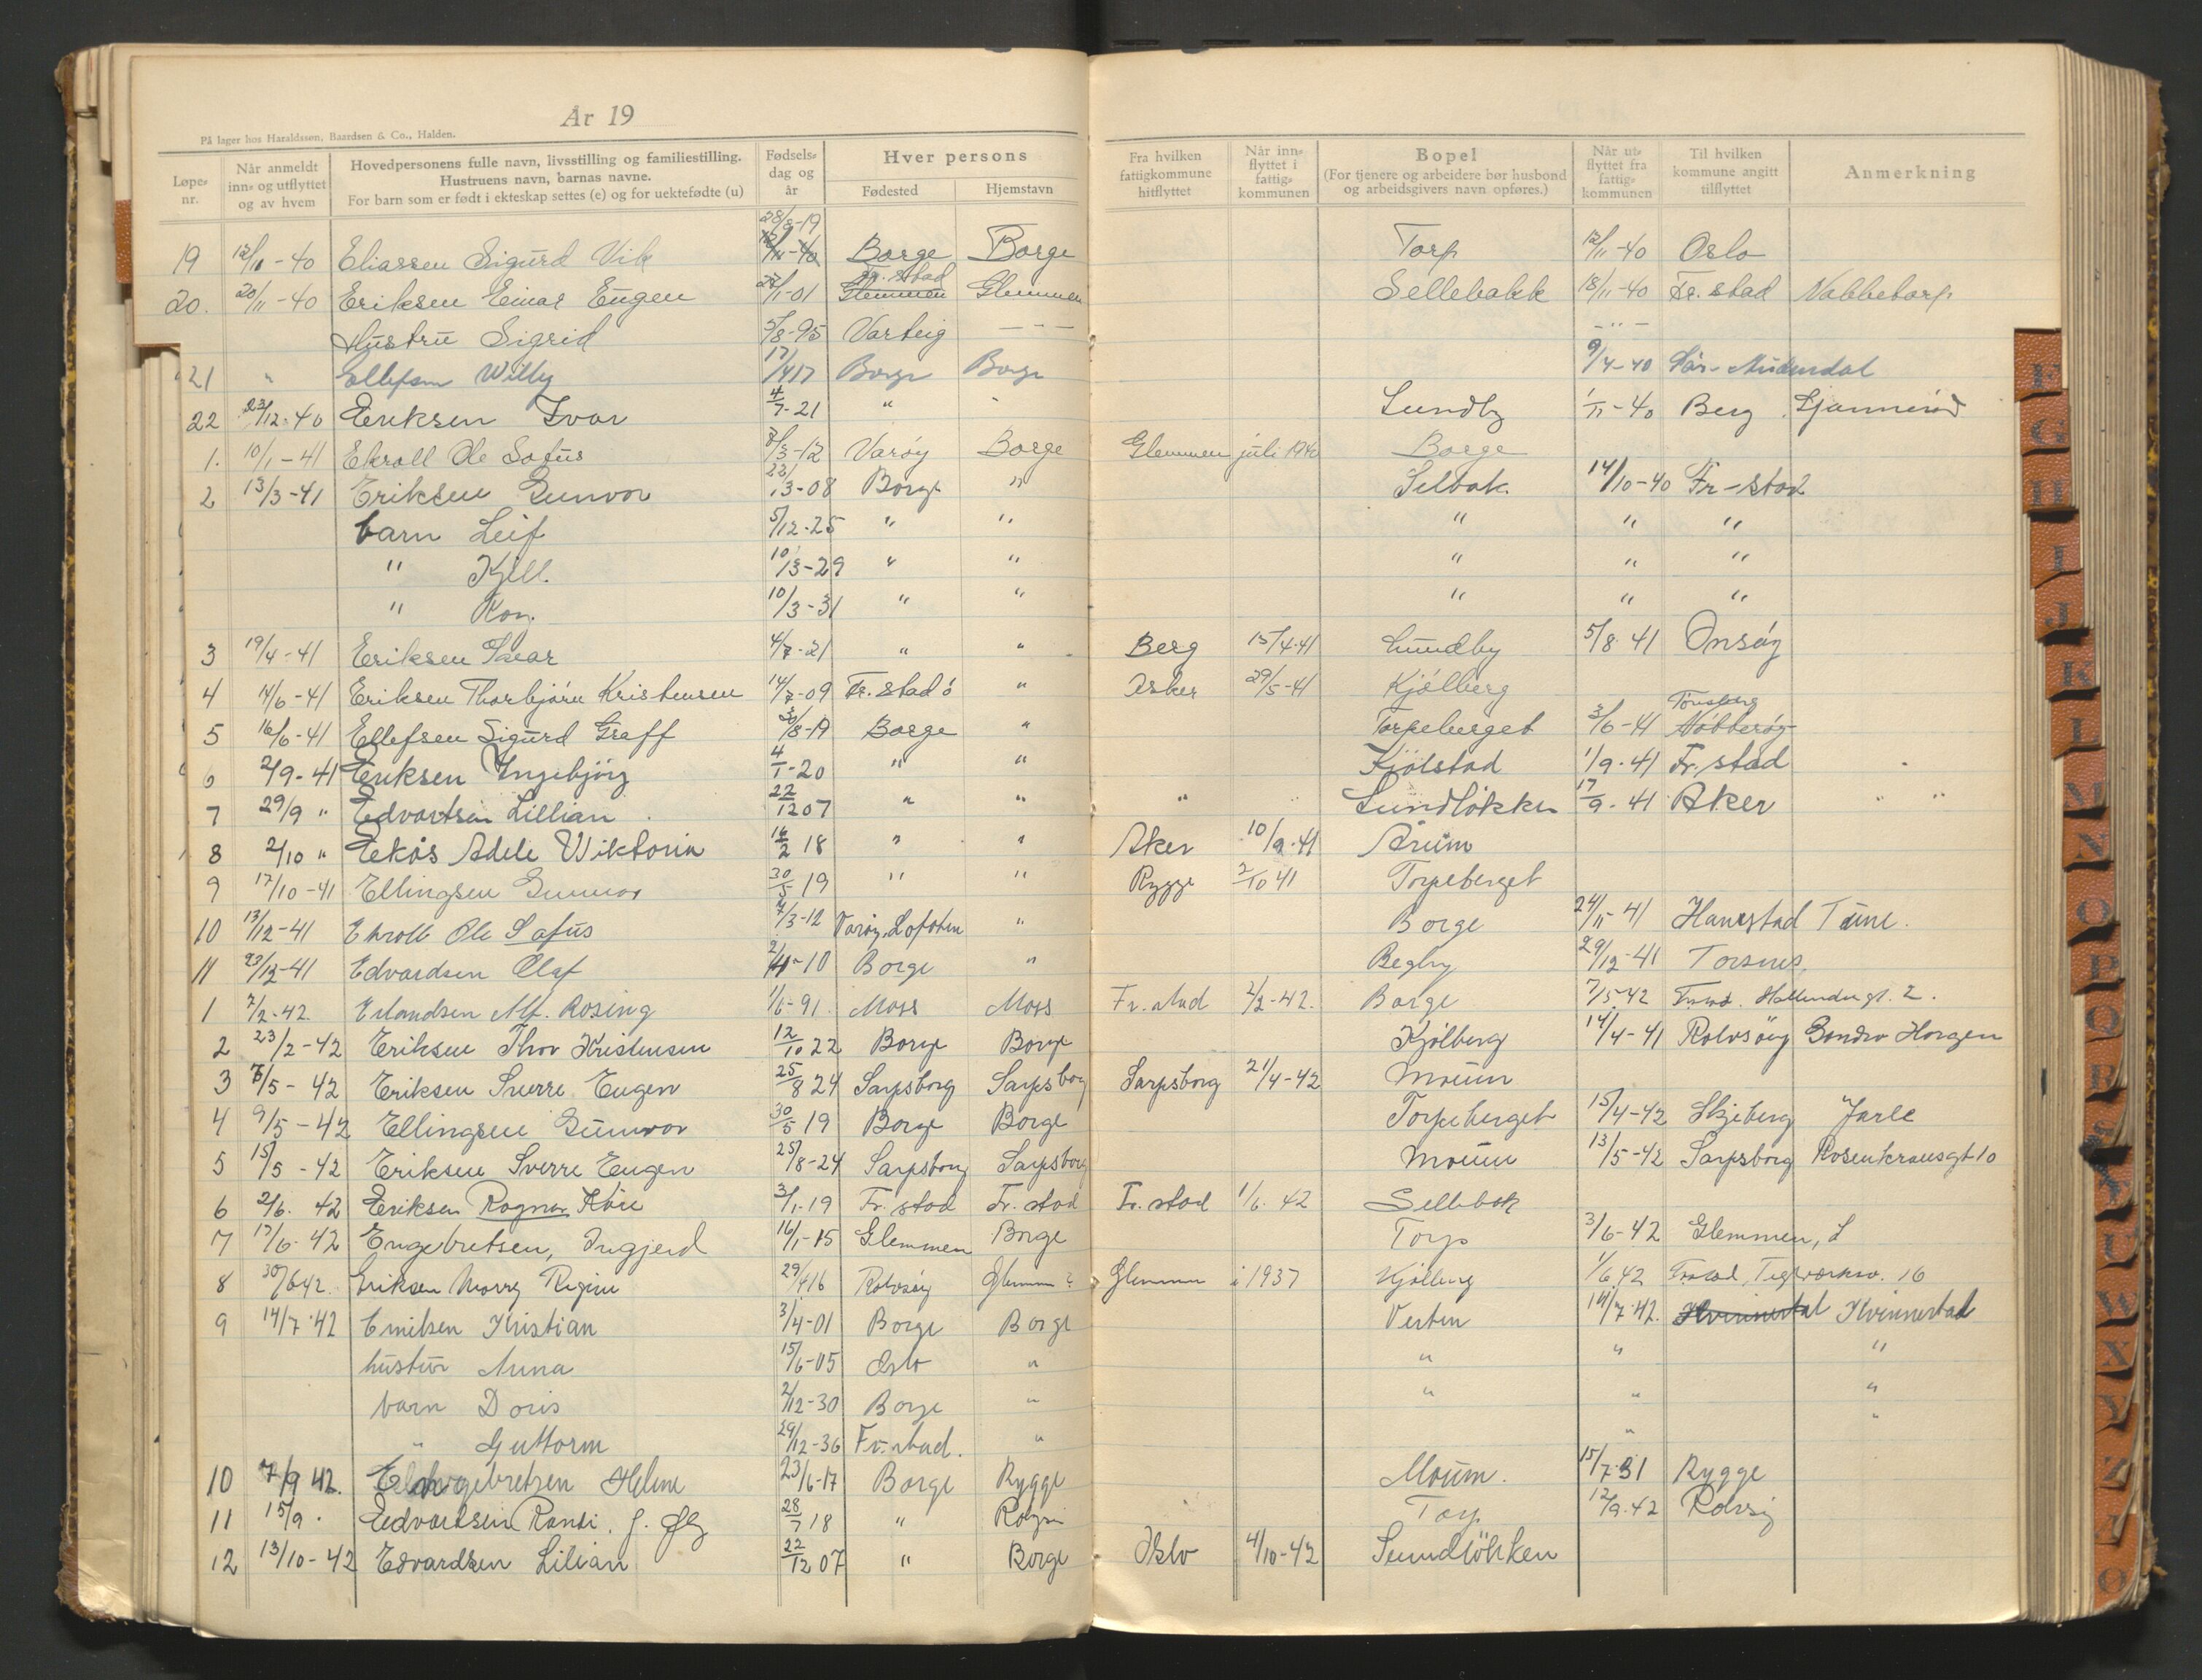 År 19
På lager hos Haraldssøn, Baardsen & Co., Halden.
Løpe-nr. | Når anmeldt inn- og utflyttet og av hvem | Hovedpersonens fulle navn, livsstilling og familiestilling. Hustruens navn, barnas navne. For barn som er født i ekteskap settes (e) og for uektefødte (u) | Fødsels-dag og år | Hver persons Fødested | Hjemstavn | Fra hvilken fattigkommune hitflyttet | Når inn-flyttet i fattig-kommunen | Bopel (For tjenere og arbeidere bør husbond og arbeidsgivers navn opføres.) | Når ut-flyttet fra fattig-kommunen | Til hvilken kommune angitt tilflyttet | Anmerkning
28/8-19
19 12/11-40 Eliassen Sigurd Vik 12/11-40 Borge Borge Torp 12/11-40 Oslo
Fr. stad
20. 20/11-40 Eriksen Einar Eugen 27/1-01 Glemmen Glemmen Sellebakk 18/11-40 Fr. stad Nabbetorp
Hustru Sigrid 5/8-95 Varteig — " — — " —
21 " Ellefsen Willy 17/4 17 Borge Borge 9/4-40
22 23/12-40 Eriksen Ivar 4/7-21 " " Lundby 1/11-40 Berg
1. 10/1-41 Ekroll Ole Sofus 7/3-12 Varøy Borge Glemmen juli 1940 Borge
2 13/3-41 Eriksen Gunvor 23/3-08 Borge " Selbak 14/10-40 Fr-stad
barn Leif 5/12-25 " " " " "
" Kjell. 10/3-29 " " " " "
" Roy. 10/3-31 " " " " "
3 19/4-41 Eriksen Ivar 4/7-21 " " Berg 15/4-41 Lundby 5/8 41 Onsøy
4 14/6-41 Eriksen Thorbjørn Kristensen 14/7-09 Fr. stad " Asker 29/5-41 Kjølberg
Tønsberg
5 16/6-41 Ellefsen Sigurd Graff 30/8-19 Borge " Torpeberget 3/6-41 Nøtterøy
6 2/9-41 Eriksen Ingebjørg 4/1-20 " " Kjølstad 1/9-41 Fr. stad
7 29/9 " Edvartsen Lillian 22/12 07 " " " Lundløkken 17/9-41 Aker " "
8 2/10 " Ekås Adele Wiktoria 16/2 18 " " Aker 10/9-41 Årum
9 17/10-41 Ellingsen Gunvor 30/5 19 " " Rygge 2/10 41 Torpeberget
10 13/12-41 Ekroll Ole Sofus 7/3-12 Varøy, Lofoten " Borge 24/11-41 Hanestad Tune.
11 23/12-41 Edvardsen Olaf 2/11-10 Borge " Begby 29/12-41 Torsnes,
1 7/2-42 Erlandsen Alf. Rosing 1/6-91 Moss Moss Fr. stad 2/2-42. Borge 7/5 42 Frstad. Hollendergt. 2.
2 23/2-42 Eriksen Thor Kristensen 12/10 22 Borge Borge Kjølberg 14/4-41 Rolvsøy Søndre Horgen
3 7/5-42 Eriksen Sverre Eugen 25/8 24 Sarpsborg Sarpsborg Sarpsborg 21/4-42 Moum
4 9/5-42 Ellingsen Gunvor 30/5 19 Borge Borge Torpeberget 15/4-42 Skjeberg Jarle
5 15/5-42 Eriksen Sverre Eugen 25/8-24 Sarpsborg Sarpsborg Moum 13/5-42 Sarpsborg Rosenkransgt 10
6 2/6. 42 Eriksen Ragnar Kåre 3/1-19 Fr. stad Fr. stad Fr. stad 1/6. 42 Sellebak
7 17/6-42 Engebretsen, Ingjerd 16/1-15 Glemmen Borge Torp 3/6-42 Glemmen, L
8 30/6 42. Eriksen Norry Regine 29/4 16 Rolvsøy Glemmen ? Glemmen i 1937 Kjølberg 1/6 42 Frstad, Teglverksv. 16
9 14/7-42 Emilsen Kristian 3/4-01 Borge Borge Verten 14/7-42. Kvinnestad
hustru Anna 15/6-05 Oslo " " " "
barn Doris 2/12-30 Borge " " " "
" Guttorm 29/12-36 Fr. stad. " " "
10 7/9 42. Engebretsen Helene 23/6-17 Borge Rygge Moum. 15/7-31 Rygge
11 15/9 " Edvardsen Randi. 28/7 18 " Rolvsøy Torp 12/9-42 Rolvsøy
12 13/10-42 Edvardsen Lilian 22/12 07 " Borge Oslo 4/10-42 Sundløkken